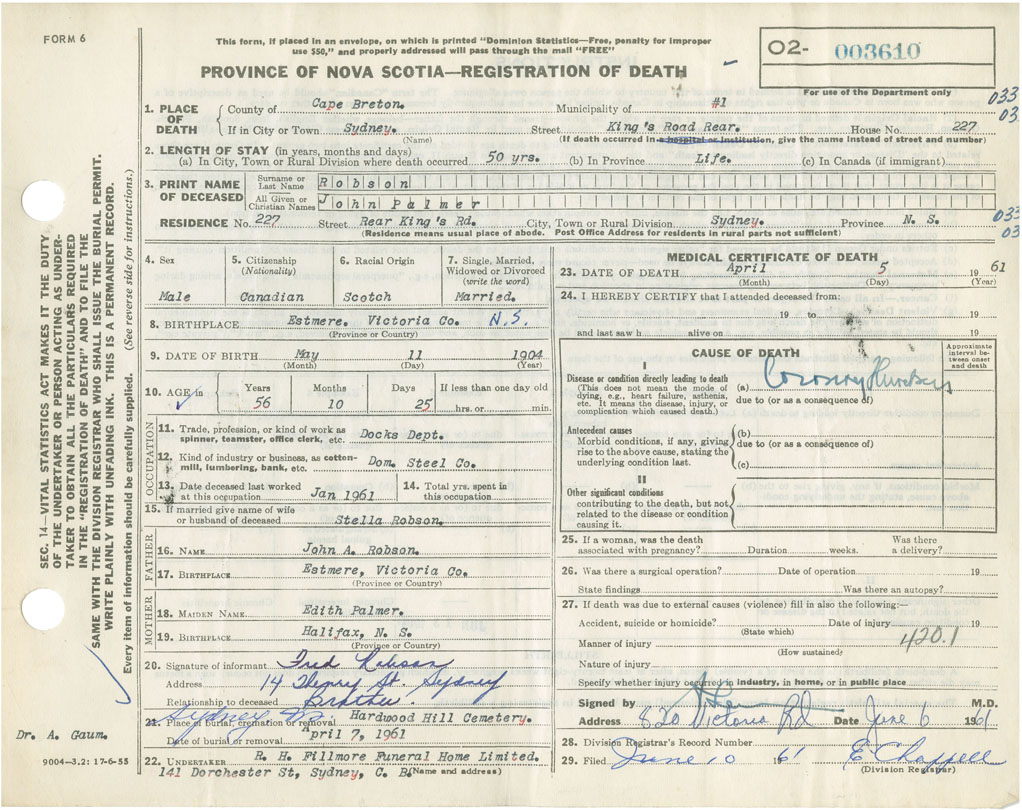 FORM 6
This form, if placed in an envelope, on which is printed "Dominion Statistics—Free, penalty for improper
use $50," and properly addressed will pass through the mail "FREE"
PROVINCE OF NOVA SCOTIA—REGISTRATION OF DEATH
02- 003610
For use of the Department only
033
03
1. PLACE OF DEATH
County of Cape Breton. Municipality of #1
If in City or Town Sydney. Street King's Road Rear. House No. 227
(Name) (If death occurred in a hospital or institution, give the name instead of street and number)
2. LENGTH OF STAY (in years, months and days)
(a) In City, Town or Rural Division where death occurred 50 yrs. (b) In Province Life. (c) In Canada (if immigrant)
3. PRINT NAME OF DECEASED
Surname or Last Name Robson
All Given or Christian Names John Palmer
RESIDENCE No. 227 Street Rear King's Rd. City, Town or Rural Division Sydney. Province N. S.
(Residence means usual place of abode. Post Office Address for residents in rural parts not sufficient)
033
03
4. Sex
Male
5. Citizenship (Nationality)
Canadian
6. Racial Origin
Scotch
7. Single, Married, Widowed or Divorced (write the word)
Married.
8. BIRTHPLACE Estmere. Victoria Co. N.S.
(Province or Country)
9. DATE OF BIRTH May 11 1904
(Month) (Day) (Year)
10. AGE in
Years Months Days If less than one day old
56 10 25 hrs. or min.
OCCUPATION
11. Trade, profession, or kind of work as spinner, teamster, office clerk, etc. Docks Dept.
12. Kind of industry or business, as cotton-mill, lumbering, bank, etc. Dom. Steel Co.
13. Date deceased last worked at this occupation Jan 1961
14. Total yrs. spent in this occupation
15. If married give name of wife or husband of deceased Stella Robson.
FATHER
16. NAME John A. Robson.
17. BIRTHPLACE Estmere, Victoria Co.
(Province or Country)
MOTHER
18. MAIDEN NAME Edith Palmer.
19. BIRTHPLACE Halifax, N. S.
(Province or Country)
20. Signature of informant Fred Robson
Address 14 Henry St. Sydney
Relationship to deceased Brother
21. Place of burial, cremation or removal Sydney Hardwood Hill Cemetery.
Date of burial or removal April 7, 1961
22. UNDERTAKER R. H. Fillmore Funeral Home Limited.
141 Dorchester St, Sydney, C. B. (Name and address)
MEDICAL CERTIFICATE OF DEATH
23. DATE OF DEATH April 5 1961
(Month) (Day) (Year)
24. I HEREBY CERTIFY that I attended deceased from:
19 to 19
and last saw h alive on 19
CAUSE OF DEATH
Approximate interval between onset and death
I
Disease or condition directly leading to death
(This does not mean the mode of dying, e.g., heart failure, asthenia, etc. It means the disease, injury, or complication which caused death.)
(a) Coronary
due to (or as a consequence of)
Antecedent causes
Morbid conditions, if any, giving rise to the above cause, stating the underlying condition last.
(b)
due to (or as a consequence of)
(c)
II
Other significant conditions
contributing to the death, but not related to the disease or condition causing it.
25. If a woman, was the death associated with pregnancy? Duration weeks. Was there a delivery?
26. Was there a surgical operation? Date of operation 19
State findings Was there an autopsy?
27. If death was due to external causes (violence) fill in also the following:—
Accident, suicide or homicide? Date of injury 19
(State which)
420.1
Manner of injury
(How sustained)
Nature of injury
Specify whether injury occurred in industry, in home, or in public place
Signed by M.D.
Address 820 Victoria Rd Date June 6 1961
28. Division Registrar's Record Number
29. Filed June 10 1961 E Chappell
(Division Registrar)
SEC. 14—VITAL STATISTICS ACT MAKES IT THE DUTY
OF THE UNDERTAKER OR PERSON ACTING AS UNDER-
TAKER TO OBTAIN ALL THE PARTICULARS REQUIRED
IN THE "REGISTRATION OF DEATH" AND TO FILE THE
SAME WITH THE DIVISION REGISTRAR WHO SHALL ISSUE THE BURIAL PERMIT.
WRITE PLAINLY WITH UNFADING INK. THIS IS A PERMANENT RECORD.
Every item of information should be carefully supplied. (See reverse side for instructions.)
Dr. A. Gaum.
9004—3.2: 17-6-55